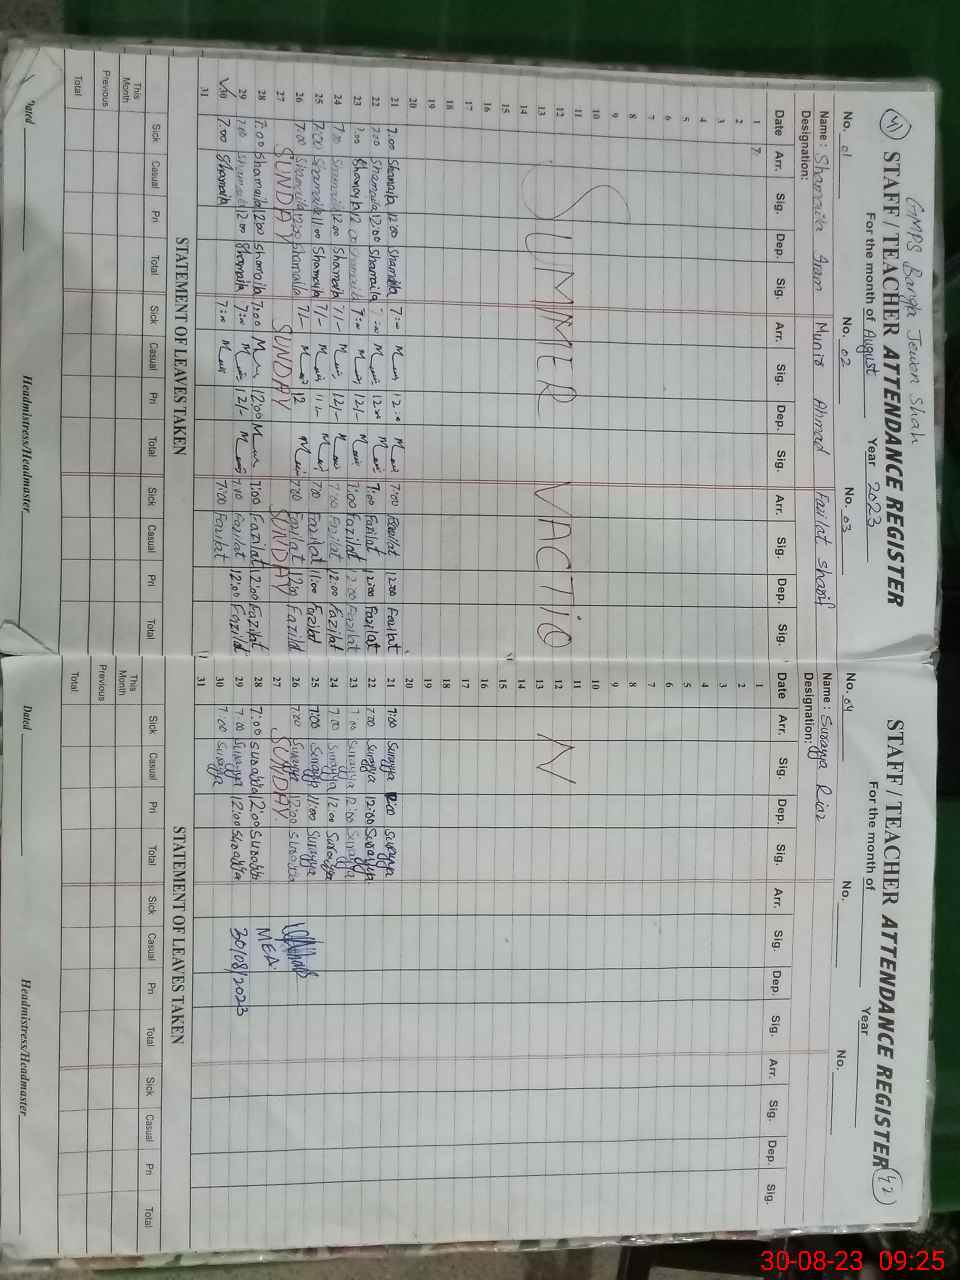 GMPS Bangla Jewan Shah
41 STAFF / TEACHER ATTENDANCE REGISTER
For the month of August Year 2023
No. 01 No. 02 No. 03
Name : Shamaila Munir Ahmad Fazilat Sharif
Designation:
Date Arr. Sig. Dep. Sig. Arr. Sig. Dep. Sig. Arr. Sig. Dep. Sig.
1 7
2
3
4
5
6
7
8
9
10
11
12
13 SUMMER VACTIO
14
15
16
17
18
19
20
21 7:00 Shamaila 12:00 Shamaila 7:00 12:00 7:00 Fazilat 12:00 Fazilat
22 7:00 Shamaila 12:00 Shamaila 7:00 12:00 7:00 Fazilat 12:00 Fazilat
23 7:00 Shamaila 12:00 Shamaila 7:00 12/- 7:00 Fazilat 12:00 Fazilat
24 7:00 Shamaila 12:00 Shamaila 7/- 12/- 7:00 Fazilat 12:00 Fazilat
25 7:00 Shamaila 11:00 Shamaila 7/- 11/- 7:00 Fazilat 11:00 Fazilat
26 7:00 Shamaila 12:00 Shamaila 7/- 12 7:00 Fazilat 12:00 Fazilat
27 SUNDAY SUNDAY SUNDAY
28 7:00 Shamaila 12:00 Shamaila 7:00 12:00 7:00 Fazilat 12:00 Fazilat
29 7:00 Shamaila 12:00 Shamaila 7:00 12/- 7:00 Fazilat 12:00 Fazilat
30 7:00 Shamaila 7:00 7:00 Fazilat
31
STATEMENT OF LEAVES TAKEN
Sick Casual Pri Total Sick Casual Pri Total Sick Casual Pri Total
This Month
Previous
Total
Dated Headmistress/Headmaster
STAFF / TEACHER ATTENDANCE REGISTER 42
For the month of Year
No. 04 No. No.
Name : Surayya Riaz
Designation:
Date Arr. Sig. Dep. Sig. Arr. Sig. Dep. Sig. Arr. Sig. Dep. Sig.
1
2
3
4
5
6
7
8
9
10
11
12
13 N
14
15
16
17
18
19
20
21 7:00 Surayya 12:00 Surayya
22 7:00 Surayya 12:00 Surayya
23 7:00 Surayya 12:00 Surayya
24 7:00 Surayya 12:00 Surayya
25 7:00 Surayya 11:00 Surayya
26 7:00 Surayya 12:00 Surayya
27 SUNDAY
28 7:00 Surayya 12:00 Surayya MEA
29 7:00 Surayya 12:00 Surayya 30/08/2023
30 7:00 Surayya
31
STATEMENT OF LEAVES TAKEN
Sick Casual Pri Total Sick Casual Pri Total Sick Casual Pri Total
This Month
Previous
Total
Dated Headmistress/Headmaster
30-08-23 09:25